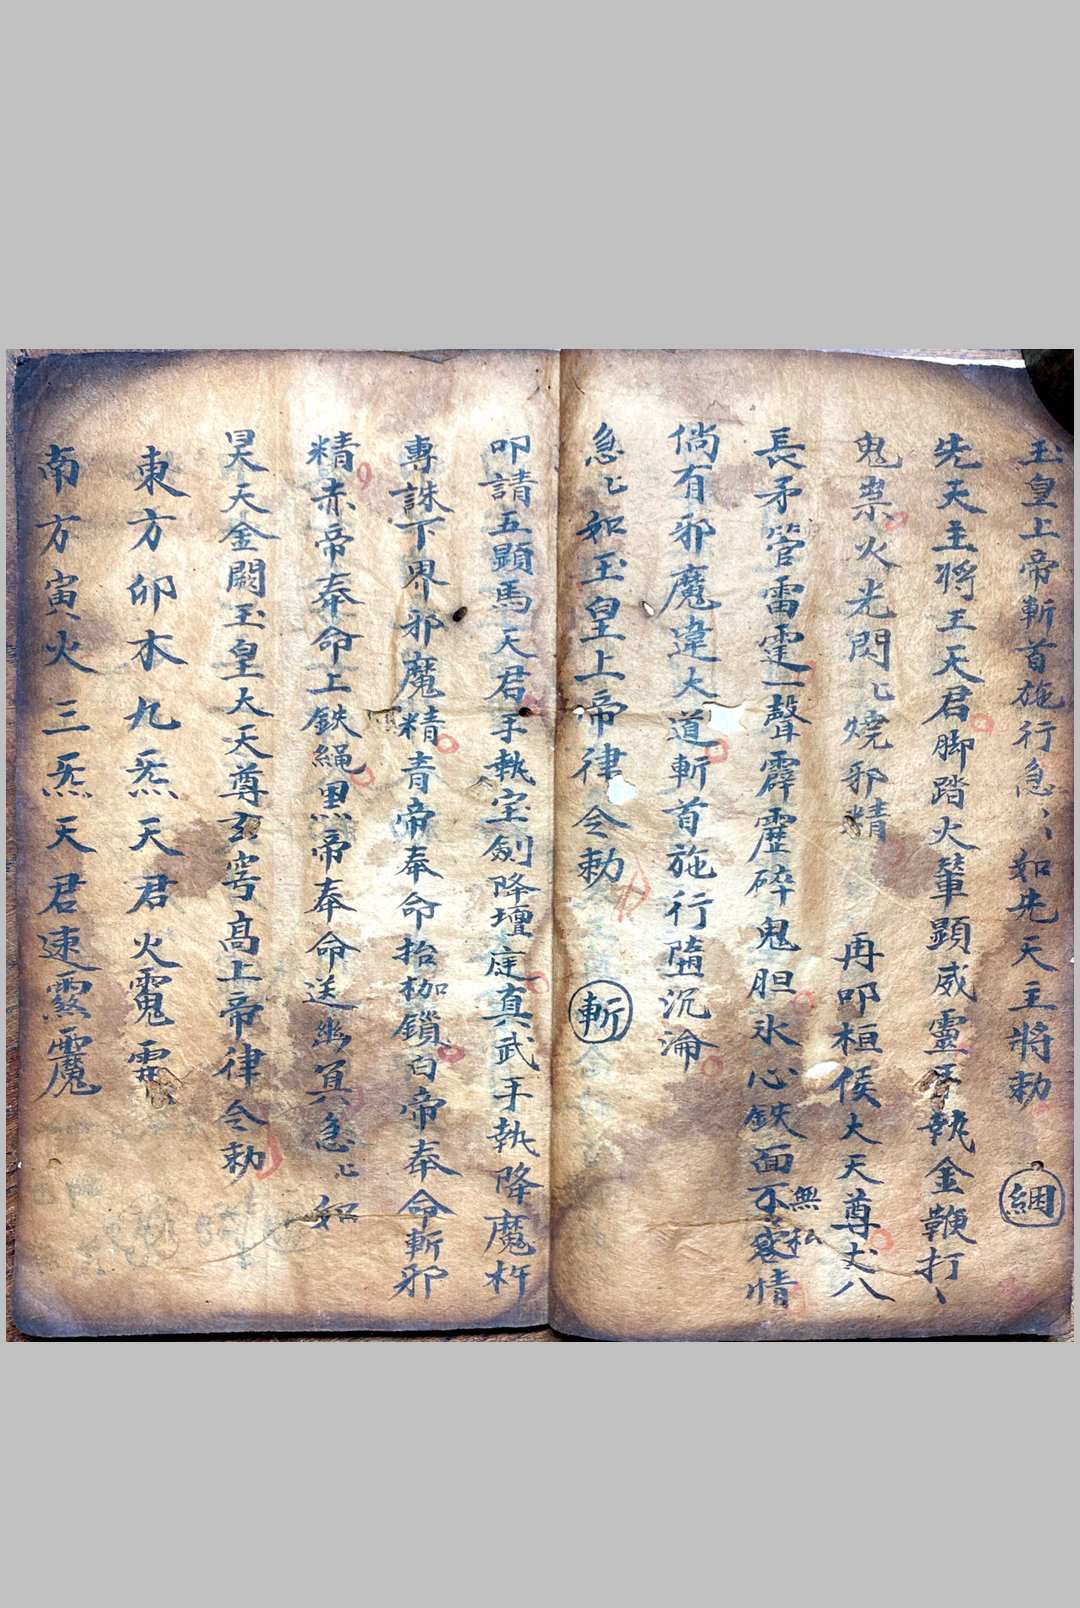 玉皇上帝斬首施行急〻如先天主將勅 綑
先天主將王天君脚踏火輦顯威靈手執金鞭打〻
鬼祟火光閃〻燒邪精 再叩桓侯大天尊丈八
長矛管雷霆一聲霹靂碎鬼胆氷心鉄面無私不容情
倘有邪魔違大道斬首施行墮沉淪
急〻如玉皇上帝律令勅 斬
叩請五顕馬天君手執宝劍降壇庭真武手執降魔杵
專誅下界邪魔精青帝奉命抬枷鎖白帝奉命斬邪
精赤帝奉命上鉄繩黑帝奉命送幽冥急〻如
昊天金闕玉皇大天尊玄穹高上帝律令勅
東方卯木九炁天君火
南方寅火三炁天君速